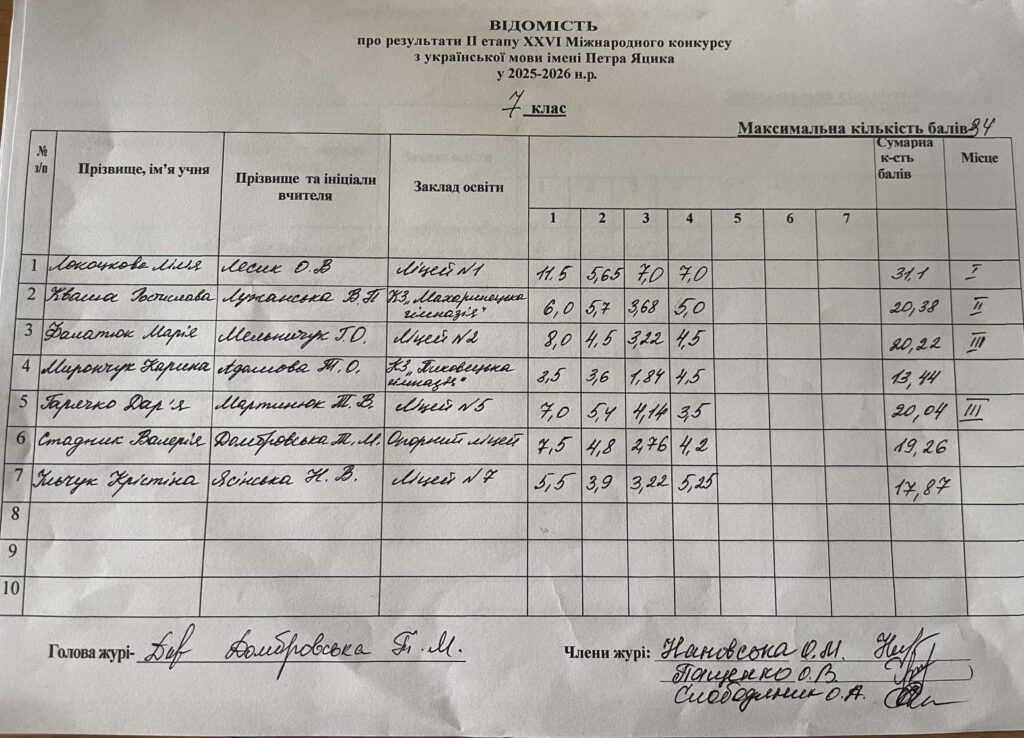 ВІДОМІСТЬ
про результати ІІ етапу XXVI Міжнародного конкурсу
з української мови імені Петра Яцика
у 2025-2026 н.р.
7 клас
Максимальна кількість балів 34
№ з/п Прізвище, ім’я учня Прізвище та ініціали вчителя Заклад освіти 1 2 3 4 5 6 7 Сумарна к-сть балів Місце
1 Локоцкова Лілія Лесик О.В Ліцей №1 11.5 5,65 7,0 7,0 31.1 І
2 Кваша Ростислава Лужанська В.П КЗ „Махаринецька гімназія" 6,0 5,7 3,68 5,0 20,38 ІІ
3 Фалатюк Марія Мельничук Г.О. Ліцей №2 8,0 4,5 3,22 4,5 20,22 ІІІ
4 Мирончук Карина Адамова Т.О. КЗ „Пиковецька гімназія" 3,5 3,6 1,84 4,5 13,44
5 Гарячко Дар'я Мартинюк Т.В. Ліцей №5 7,0 5,4 4,14 3,5 20,04 ІІІ
6 Стадник Валерія Домбровська Т.М. Опорний ліцей 7,5 4,8 2,76 4,2 19,26
7 Ільчук Крістіна Ясінська Н.В. Ліцей №7 5,5 3,9 3,22 5,25 17,87
8
9
10
Голова журі- Домбровська Т.М. Члени журі: Нановська О.М.
Пащенко О.В.
Слободяник О.А.